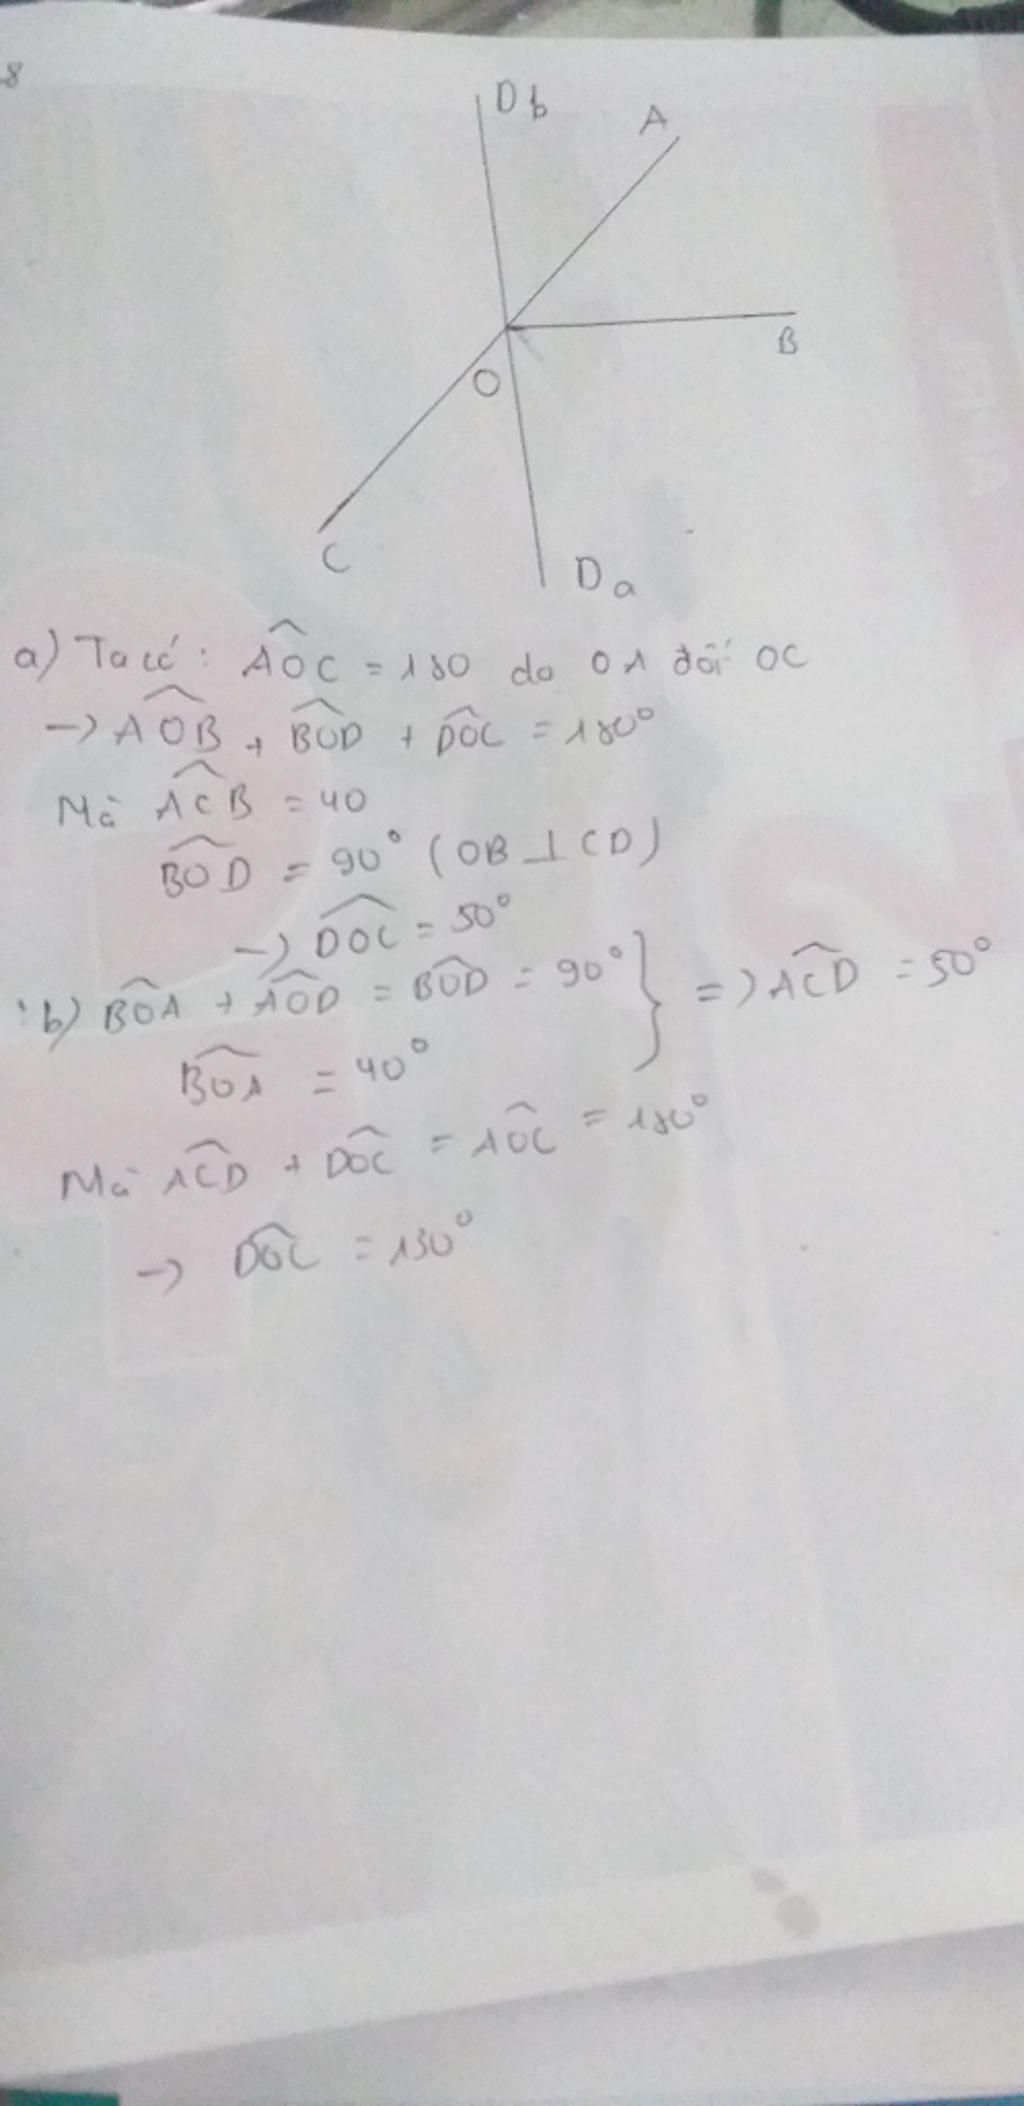 8
D b
A
B
O
C
D a
a) Ta có: AOC = 180 do OA đối OC
-> AOB + BOD + DOC = 180°
Mà ACB = 40
BOD = 90° (OB ⊥ CD)
-> DOC = 50°
b) BOA + AOD = BOD = 90° } => ACD = 50°
BOA = 40°
Mà ACD + DOC = AOC = 180°
-> DOC = 130°